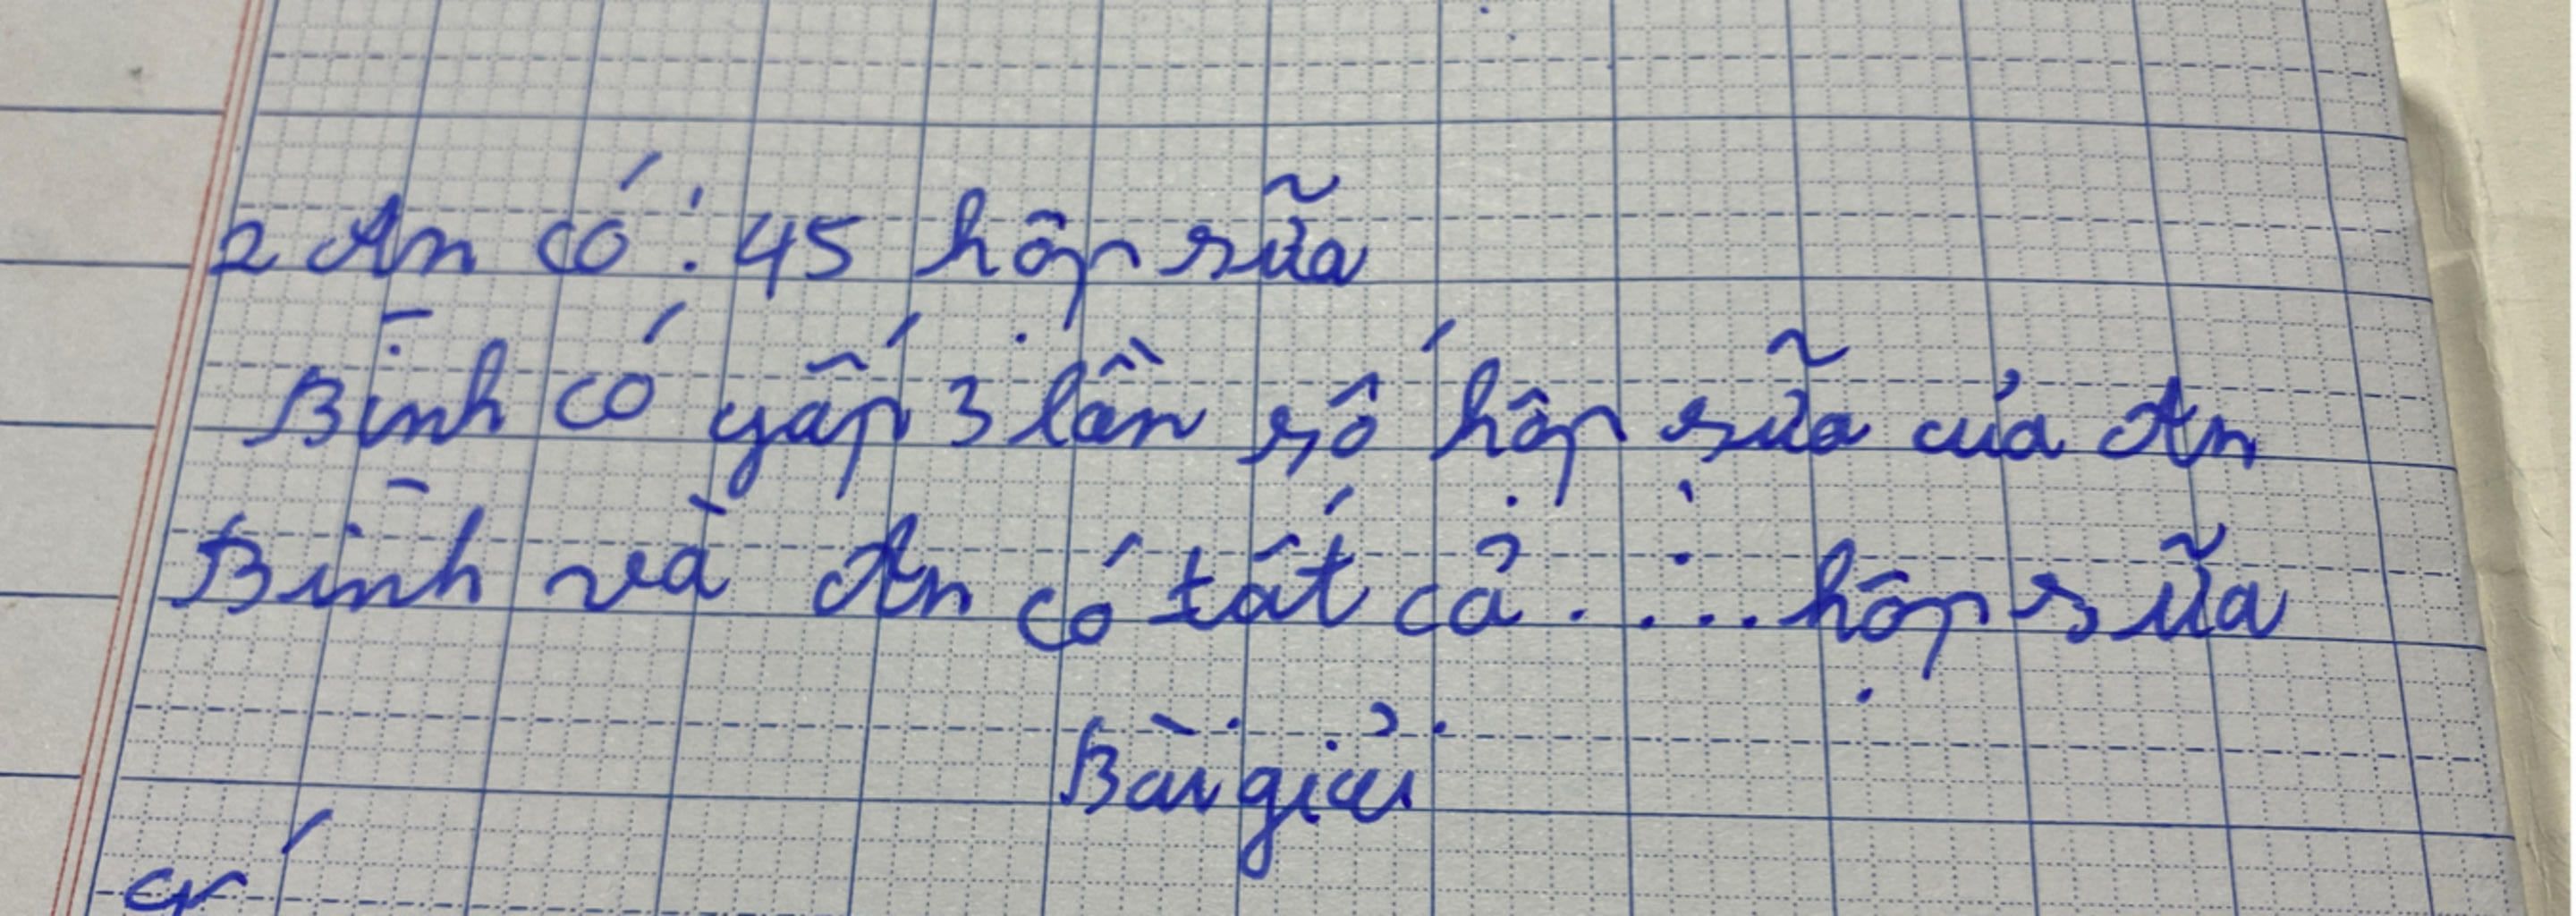 2 An có : 45 hộp sữa
Bình có gấp 3 lần số hộp sữa của An
Bình và An có tất cả : .... hộp sữa
Bài giải